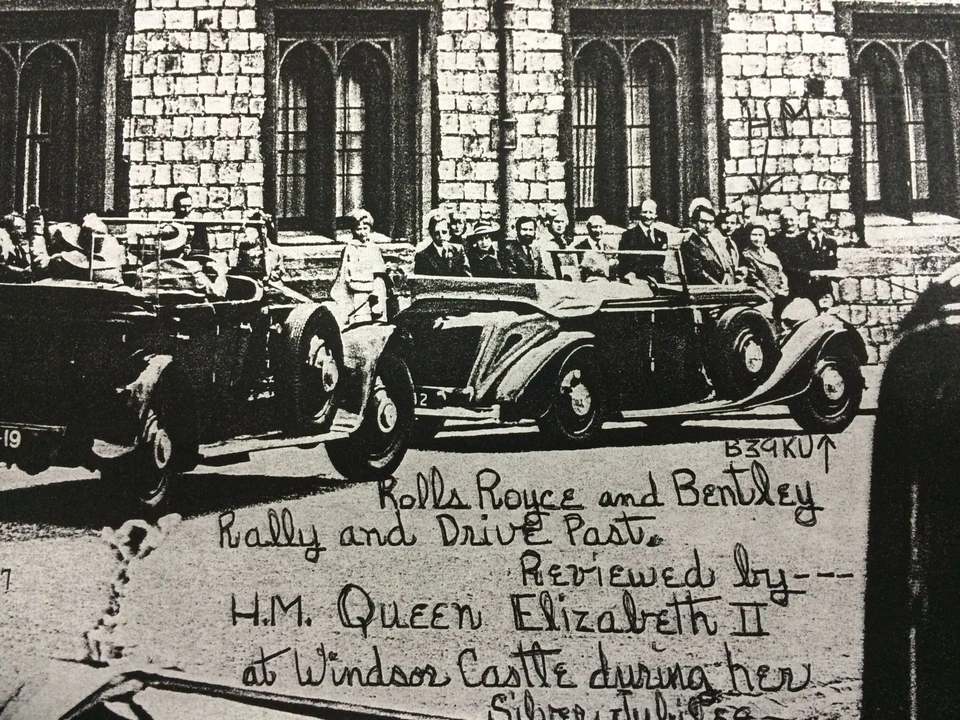 HM
-19
2
B39KU↑
Rolls Royce and Bentley
Rally and Drive Past.
Reviewed by---
7
H.M. Queen Elizabeth II
at Windsor Castle during her
Silver Jubilee